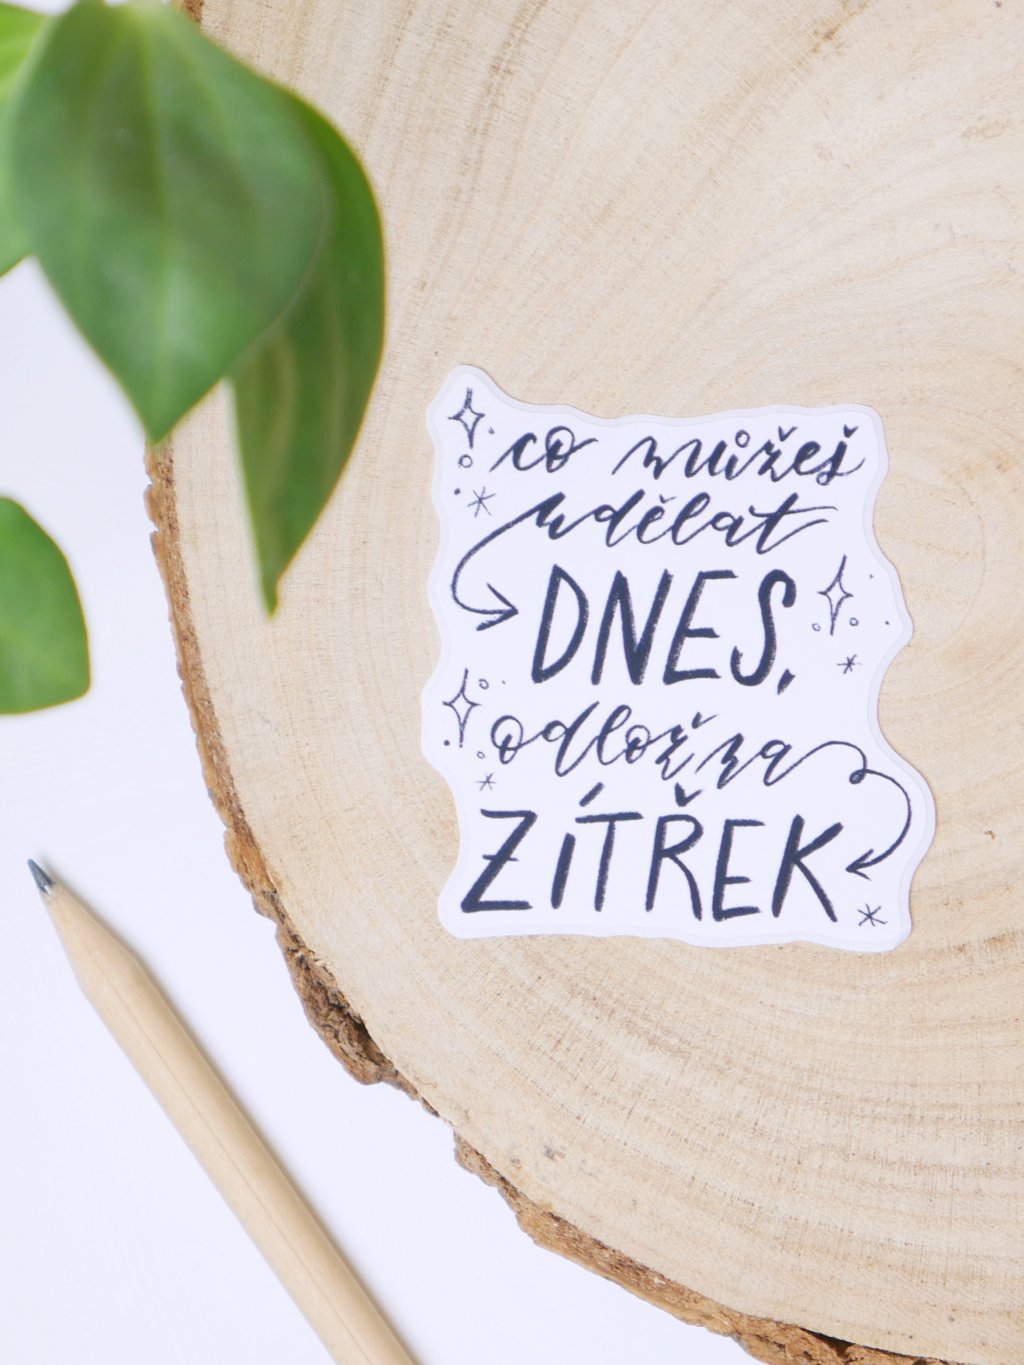 co můžeš
udělat
DNES,
odlož na
ZÍTŘEK